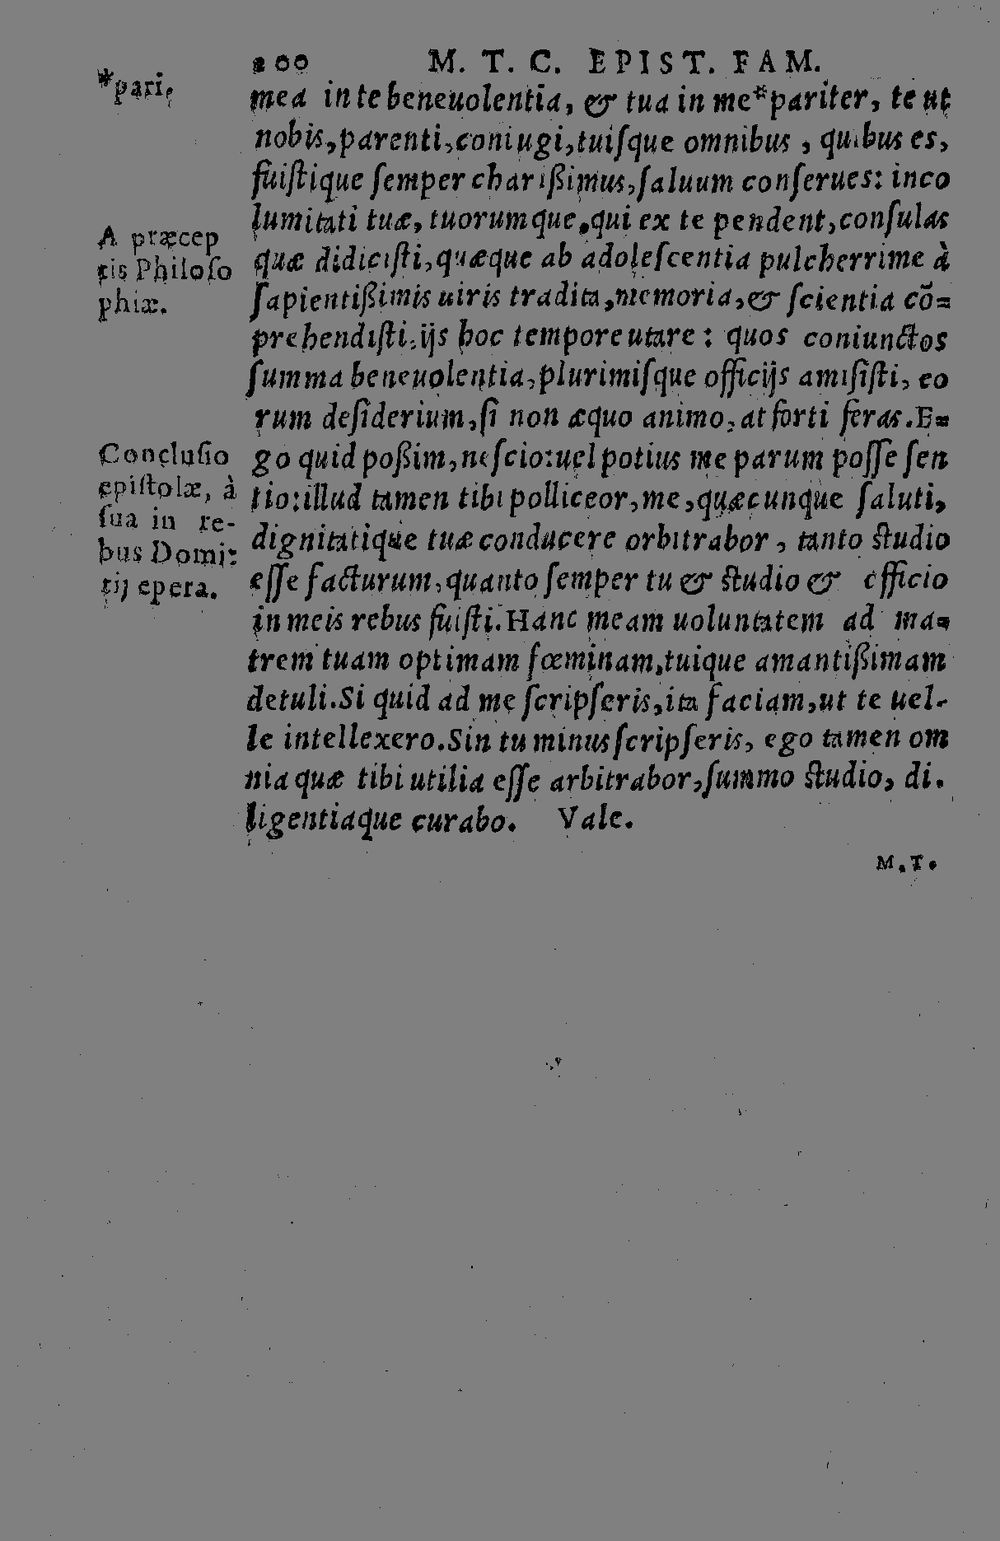 200 M. T. C. EPIST. FAM.
*pari.
mea in te beneuolentia, & tua in me*pariter, te ut
nobis, parenti, coniugi, tuiſque omnibus, quibus es,
fuiſtique ſemper charißimus, ſaluum conſerues: inco
lumitati tuæ, tuorumque, qui ex te pendent, conſulas
A præcep
tis Philoſo
phiæ.
quæ didiciſti, quæque ab adoleſcentia pulcherrime à
ſapientißimis uiris tradita, memoria, & ſcientia cõ=
prehendiſti, ijs hoc tempore utare: quos coniunctos
ſumma beneuolentia, plurimiſque officijs amiſiſti, eo
rum deſiderium, ſi non æquo animo, at forti feras. E=
Concluſio
epiſtolæ, à
ſua in re-
bus Domi:
tij epera.
go quid poßim, neſcio: uel potius me parum poſſe ſen
tio: illud tamen tibi polliceor, me, quæcunque ſaluti,
dignitatique tuæ conducere orbitrabor, tanto ſtudio
eſſe facturum, quanto ſemper tu & ſtudio & efficio
in meis rebus fuiſti. Hanc meam uoluntatem ad ma=
trem tuam optimam fœminam, tuique amantißimam
detuli. Si quid ad me ſcripſeris, ita faciam, ut te uel-
le intellexero. Sin tu minus ſcripſeris, ego tamen om
nia quæ tibi utilia eſſe arbitrabor, ſummo ſtudio, di.
ligentiaque curabo. Vale.
M. T.